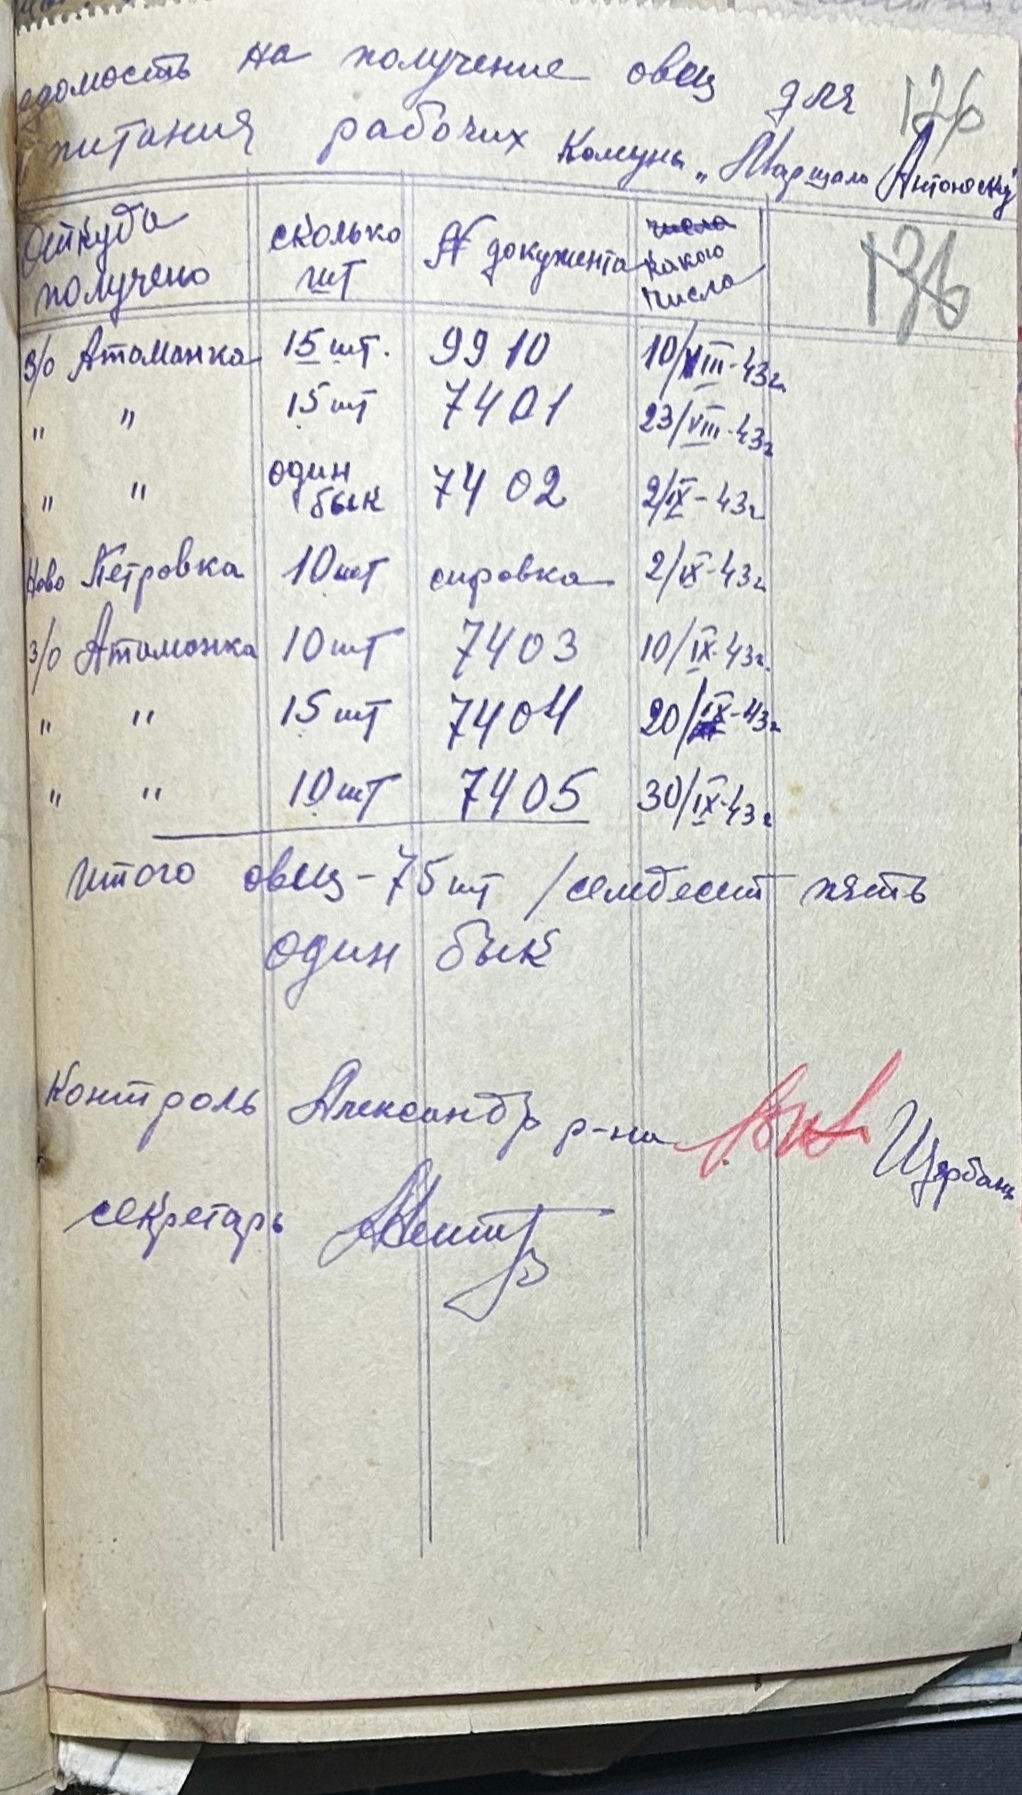 едомость на получение овец для 126
питания рабочих Комуны „Маршала Антонеску"
Откуда получено сколько шт № документа числа какого числа 136
З/о Атоманка 15 шт. 9910 10/VIII-43г.
" " 15 шт 7401 23/VIII-43г
" " один бык 7402 2/IX-43г
Ново Петровка 10 шт сировка 2/IX-43г
З/о Атоманка 10 шт 7403 10/IX-43г.
" " 15 шт 7404 20/IX-43г
" " 10 шт 7405 30/IX-43г
Итого овец - 75 шт /семдесят пять
один бык
Контроль Александр р-на Щербань
секретарь